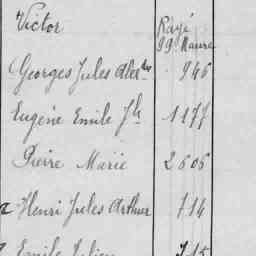 Victor Rayé
99 Naure
Georges Jules Alex^dre 946
Eugène Emile J^h 1177
Pierre Marie 2606
Henri Jules Arthur 714
Emile Julien 715